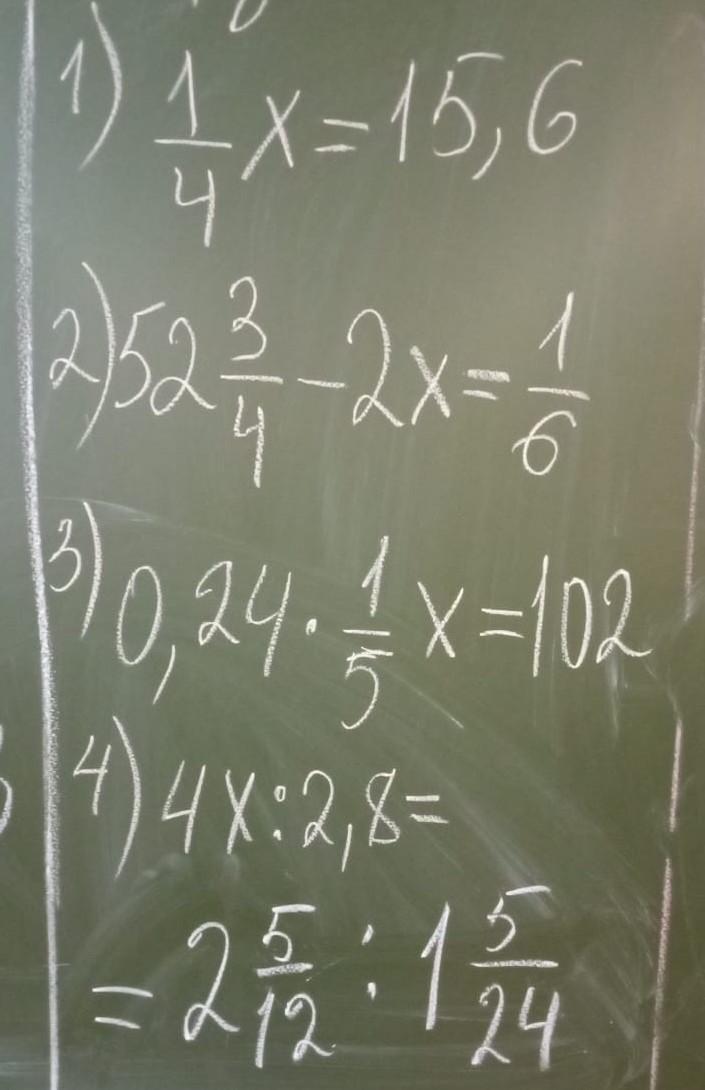 1) 1/4 x = 15,6
2) 52 3/4 - 2x = 1/6
3) 0,24 · 1/5 x = 102
4) 4x : 2,8 =
= 2 5/12 : 1 5/24